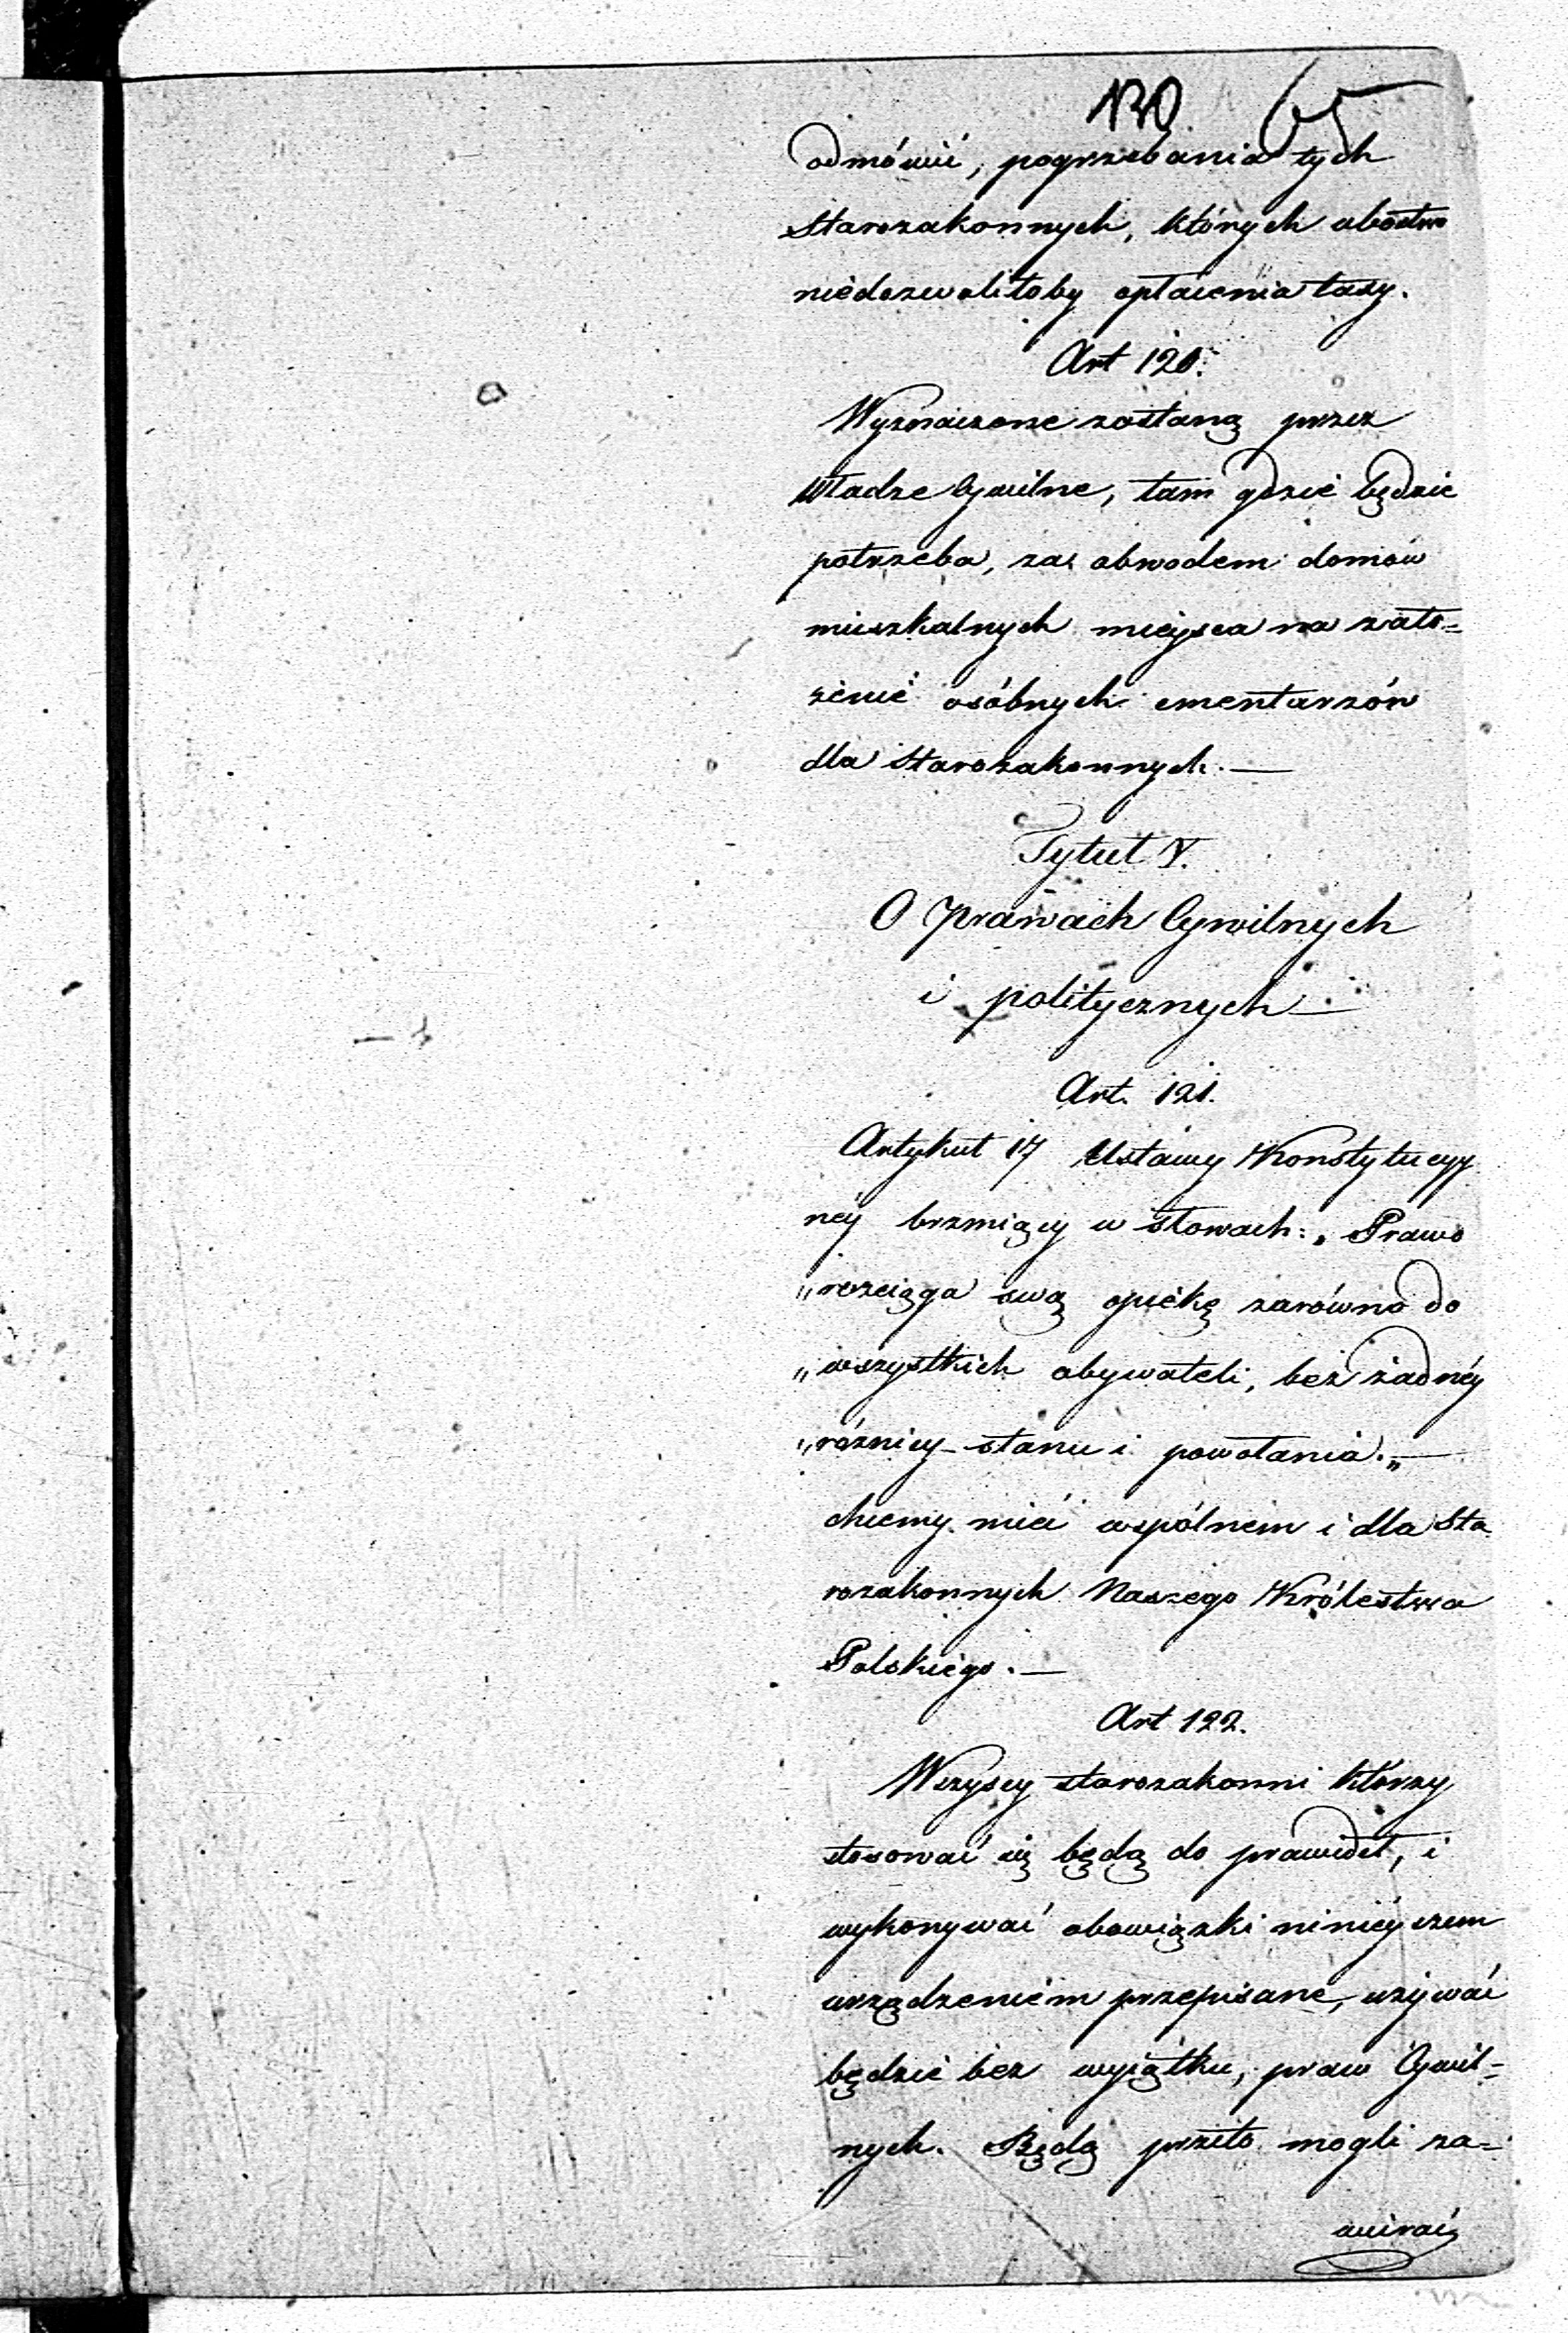 130 65
odmówić, pogrzebania tych
Starozakonnych, których ubóstwo
niedozwoliłoby opłacenia taxy.
Art 120.
Wyznaczone zostaną przez
Władze Cywilne, tam gdzie będzie
potrzeba, za obwodem domów
mieszkalnych miejsca na zało=
żenie osóbnych cmentarzów
dla Starozakonnych. —
Tytuł V.
O Prawach Cywilnych
i politycznych —
Art. 121.
Artykuł 17 Ustawy Konstytucyy
néy brzmiący w słowach: „Prawo
„rozciąga swą opiekę zarówno do
„wszystkich obywateli, bez żadnéy
„różnicy stanu i powołania.„ —
chcemy mieć wspólnem i dla Sta
rozakonnych Naszego Królestwa
Polskiego. —
Art 122.
Wszyscy starozakonni którzy
stosować się będą do prawideł, i
wykonywać obowiązki ninieyszem
urządzeniem przepisane, używać
będzie bez wyiątku, praw Cywil-
nych. Będą przeto mogli za-
wierać